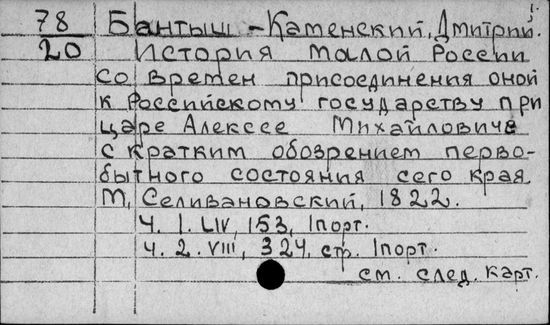 78 Бантыш-Каменский, Дмитрий. 1.
20 История Малой России
со времен присоединения оной
к Российскому государству при
царе Алексее Михайловиче
с кратким обозрением перво-
бытного состояния сего края
М, Селивановский, 1822.
Ч. 1. LIV, 153, 1 порт.
Ч. 2. VIII, 324, стр. 1 порт.
см. след. карт.